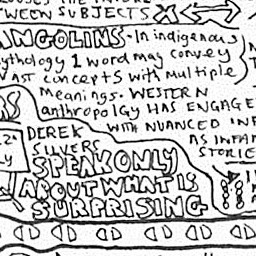 TWEEN SUBJECTS
ANGOLINS - In indigenous
ythology 1 word may convey
VAST concepts with multiple
meanings. WESTERN
anthropolgy HAS ENGAGE
WITH NUANCED INF
DEREK
AS INFAN
SILVERS
STORIE
SPEAK ONLY
ABOUT WHAT IS
SURPRISING